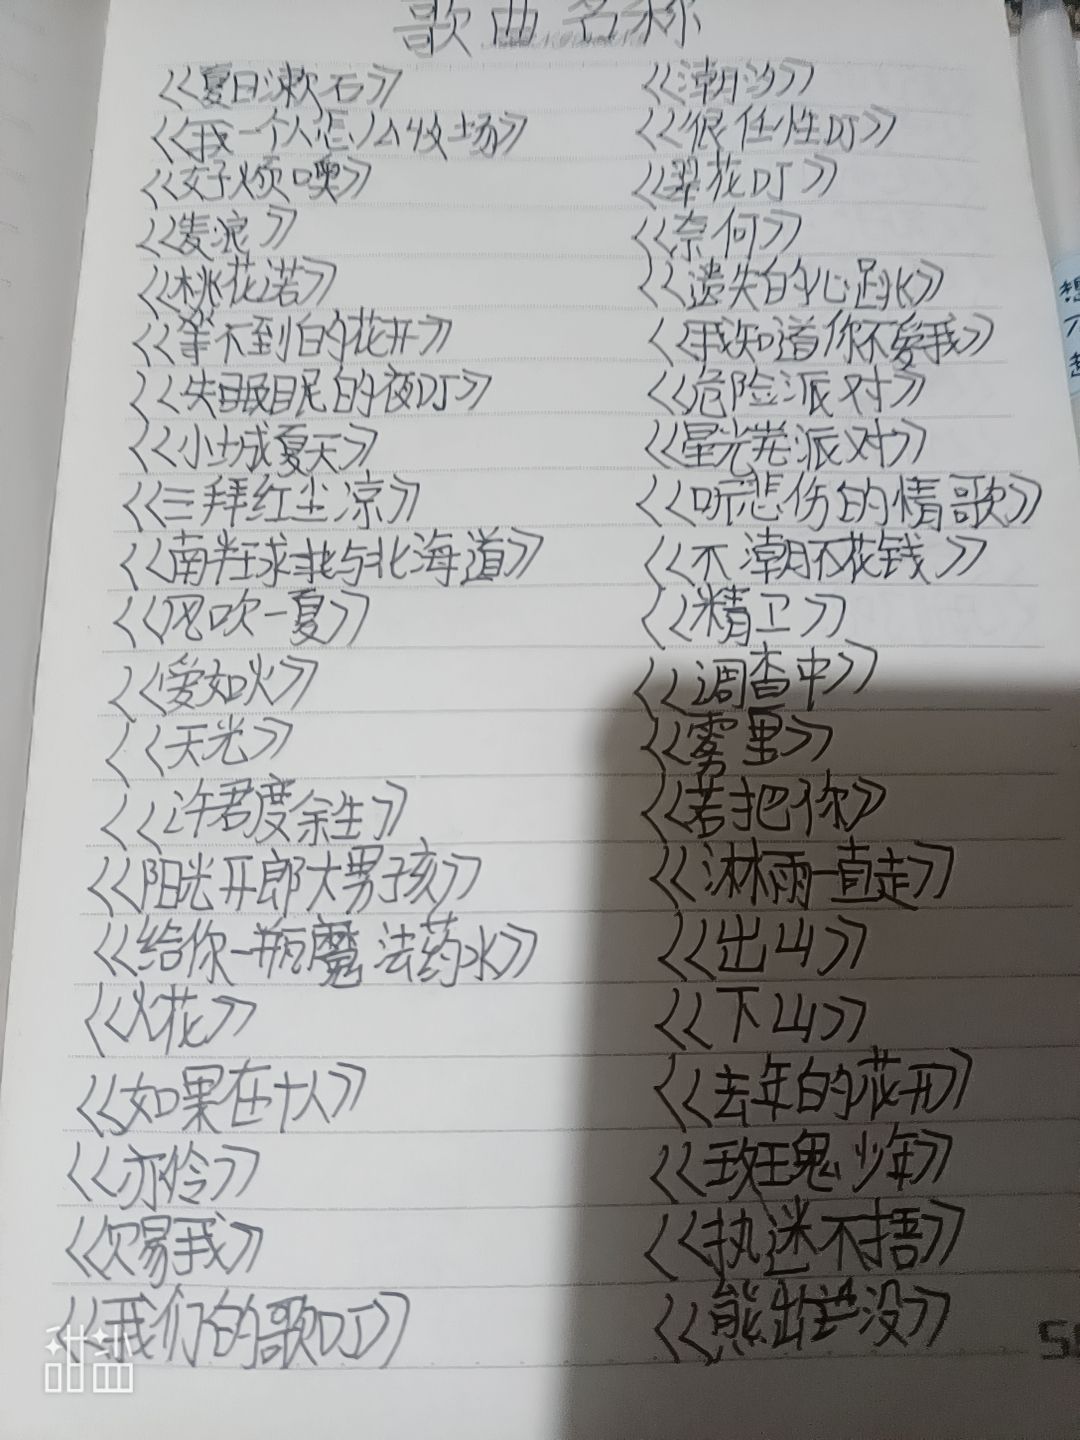 歌曲名称
《夏日漱石》
《我一个人怎么收场》
《好烦噢》
《麦浪》
《桃花诺》
《等不到的花开》
《失眠的夜DJ》
《小城夏天》
《三拜红尘凉》
《南半球与北海道》
《风吹一夏》
《爱如火》
《天光》
《许君度余生》
《阳光开郎大男孩》
《给你一瓶魔法药水》
《火花》
《如果在》
《亦伶》
《赐我》
《我们的歌DJ》
《潮汐》
《很任性DJ》
《翠花DJ》
《奈何》
《遗失的心跳》
《我知道你不爱我》
《危险派对》
《星光派对》
《听悲伤的情歌》
《不潮不花钱》
《精卫》
《调查中》
《雾里》
《若把你》
《淋雨一直走》
《出山》
《下山》
《去年的花开》
《玫瑰少年》
《执迷不捂》
《熊出没》
甜盐